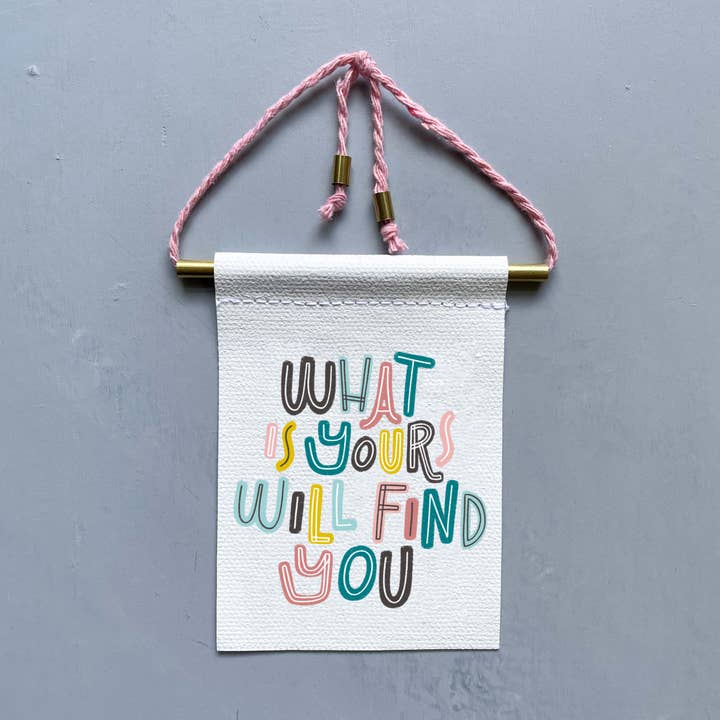 WHAT
IS YOURS
WILL FIND
YOU